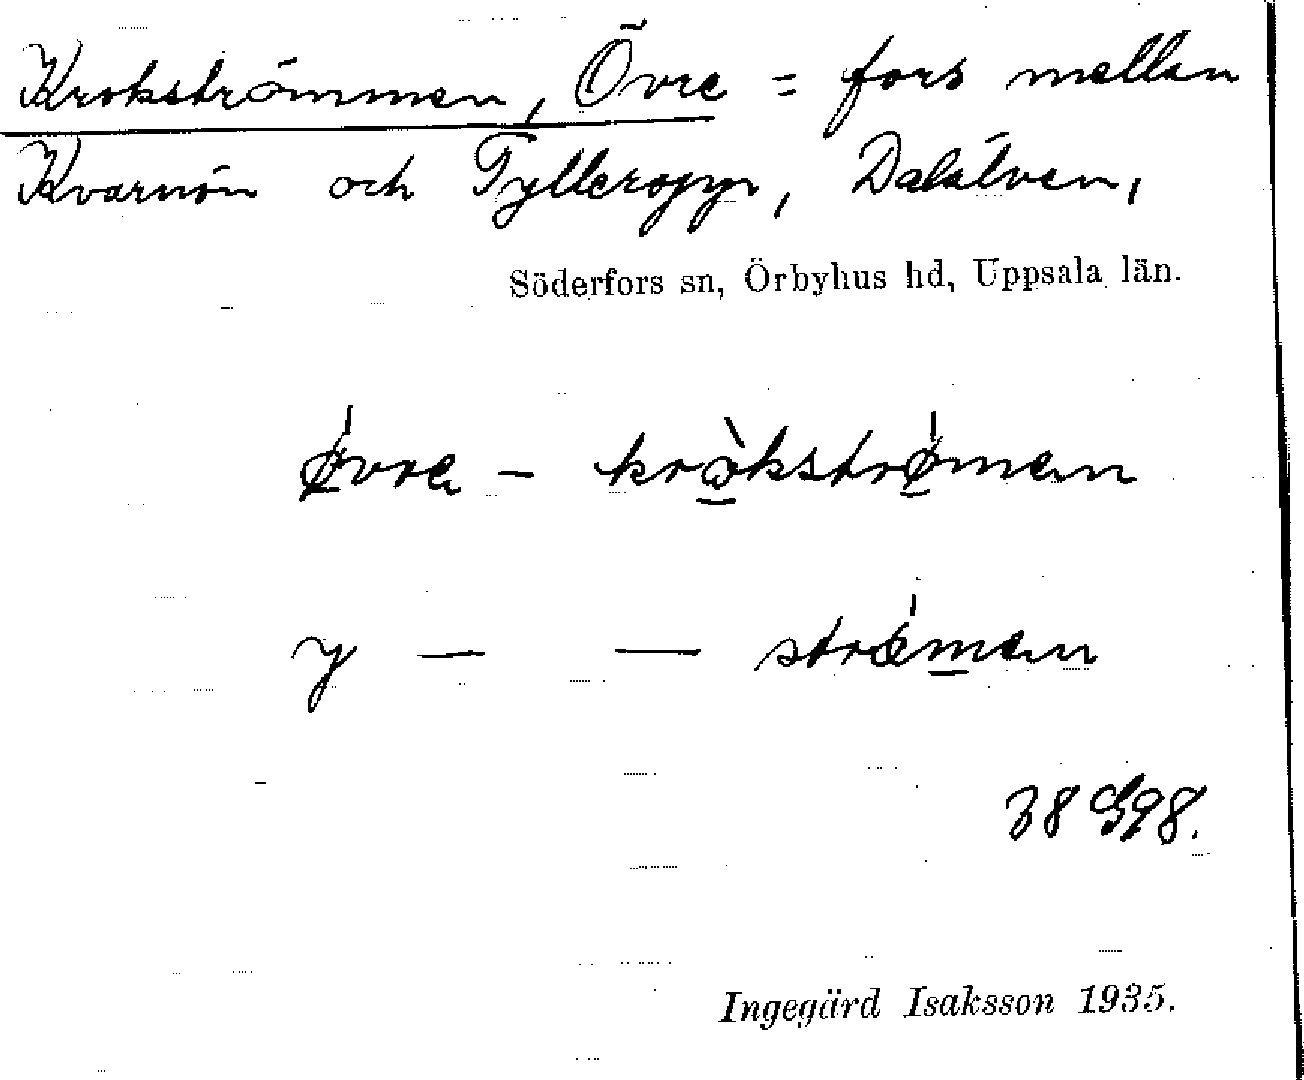 Krokströmmen, Övre = fors mellan
Kvarnön och Tylleropyn, Dalälven,
Söderfors sn, Örbyhus hd, Uppsala län.
øvre - krókstrømen
y — — strömen
38 G98.
Ingegärd Isaksson 1935.